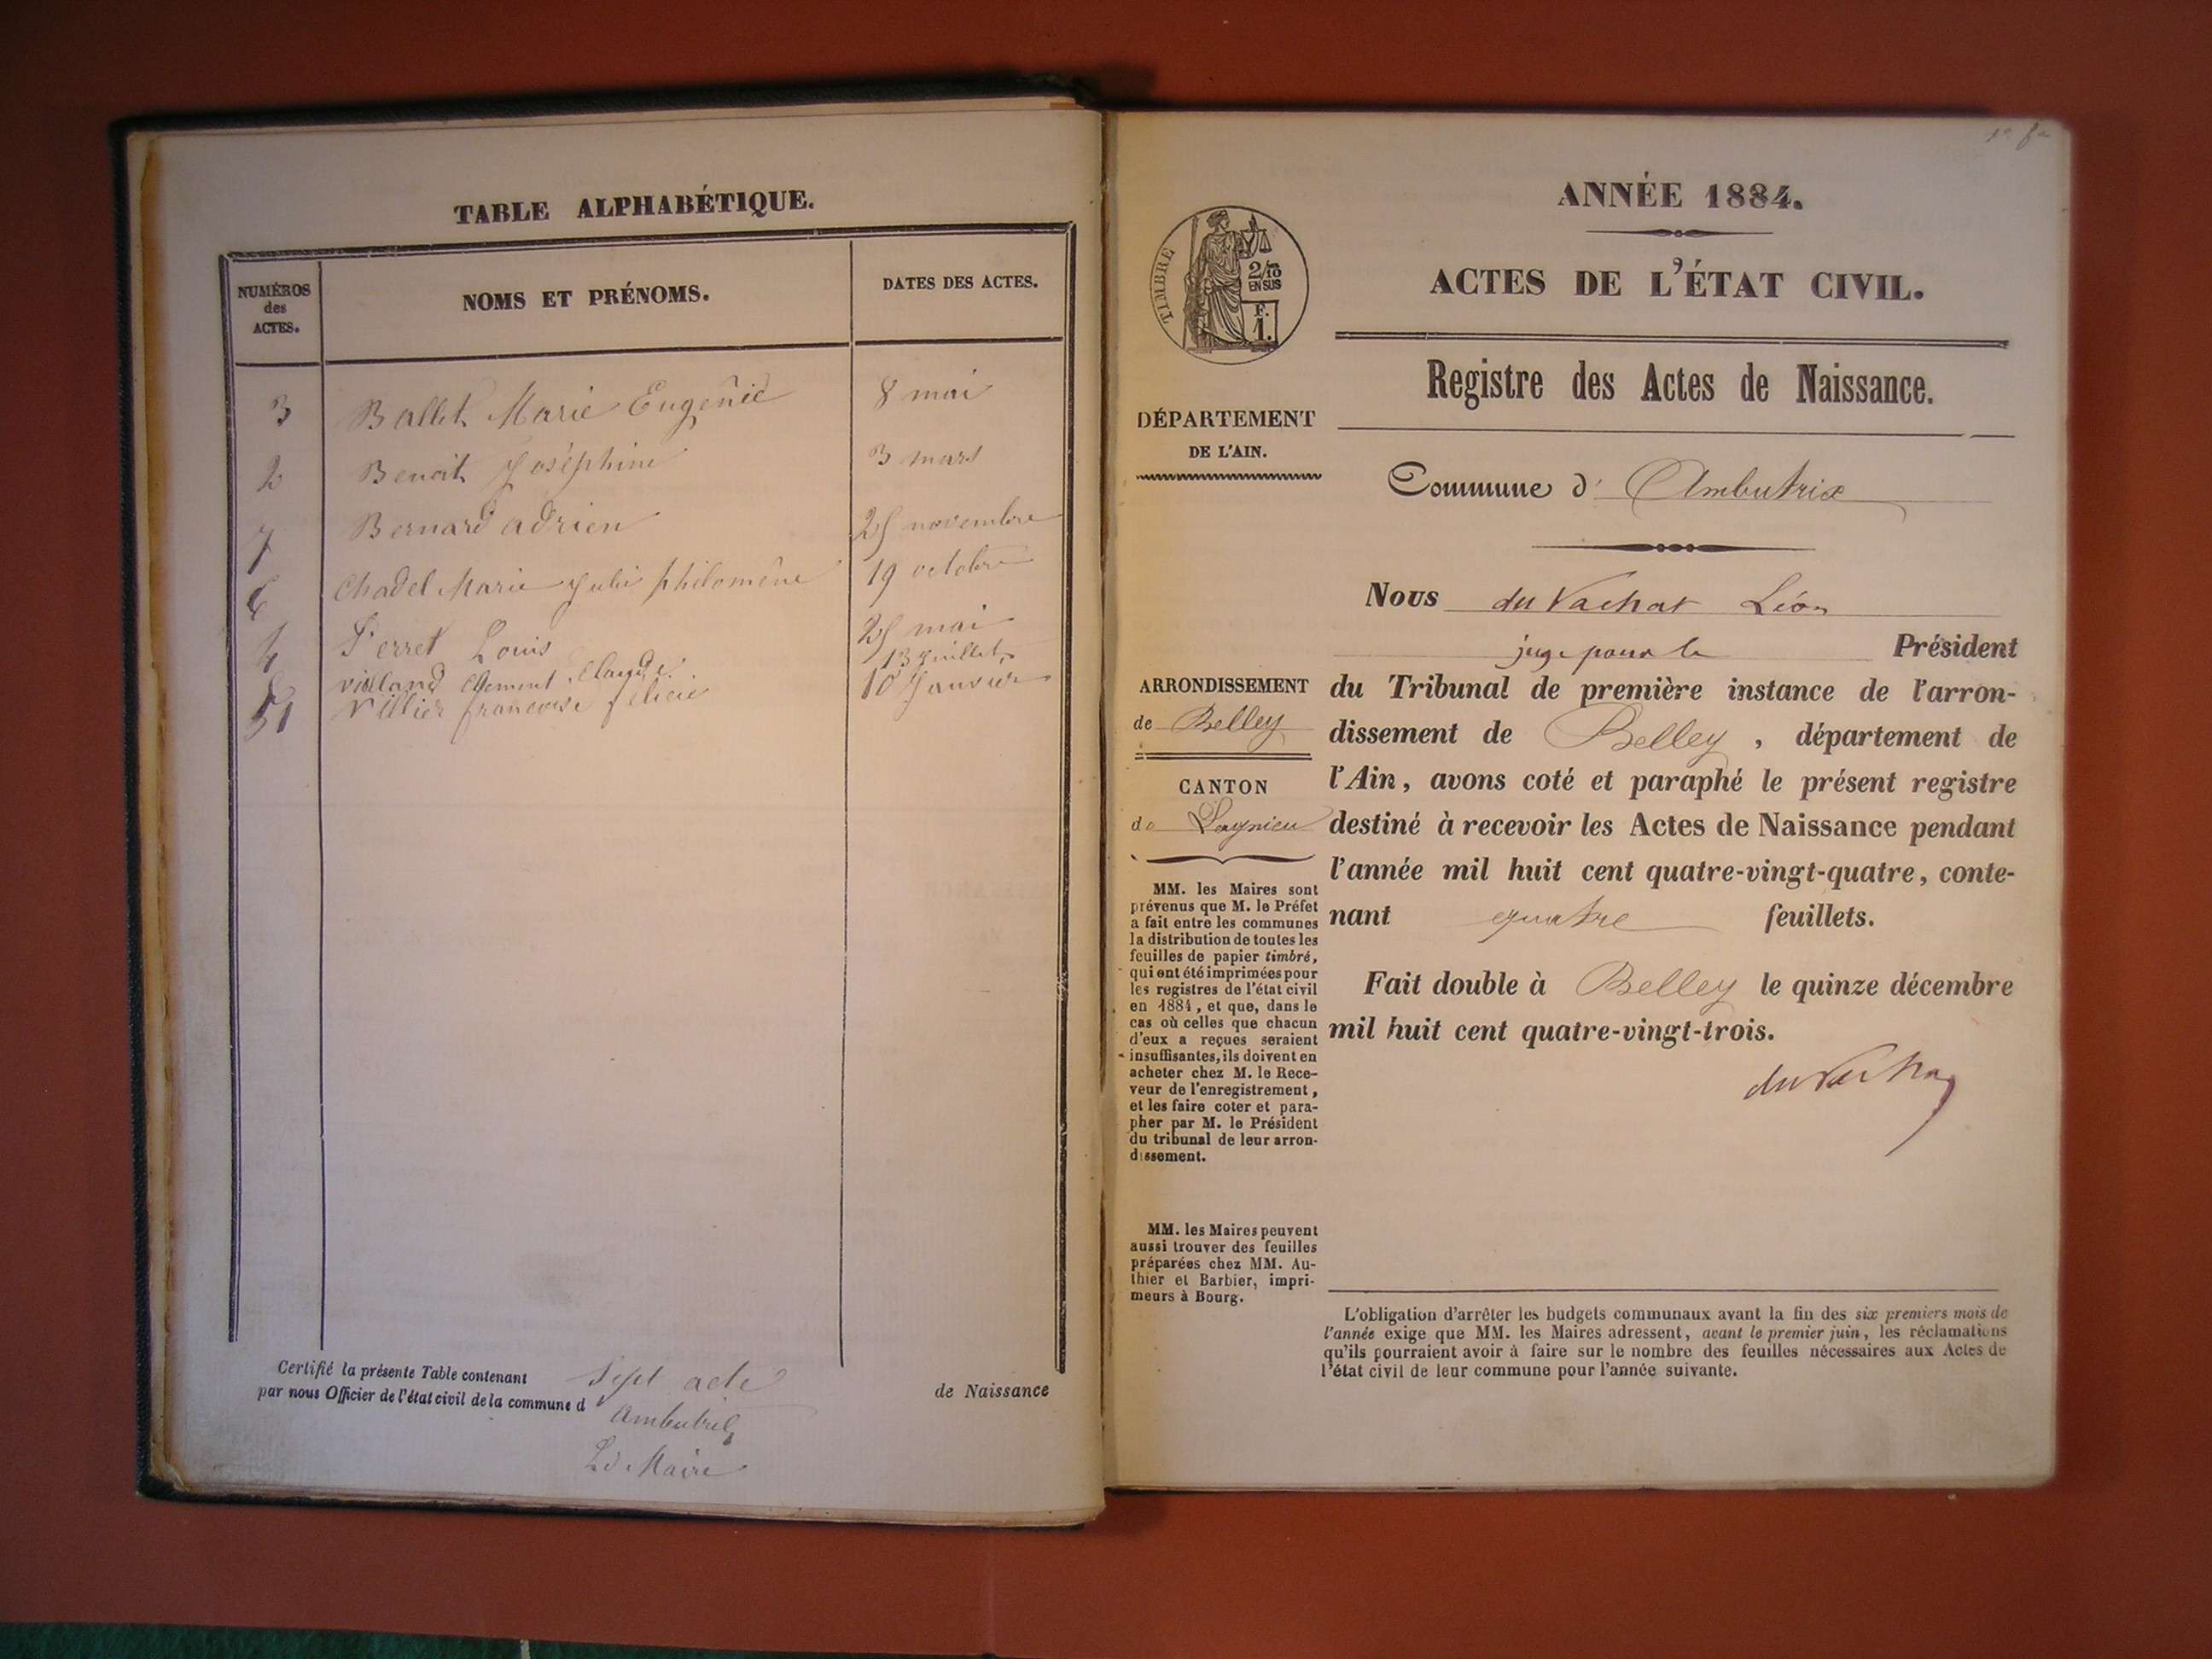 TABLE ALPHABÉTIQUE.
NUMÉROS
des
ACTES.
NOMS ET PRÉNOMS.
DATES DES ACTES.
3 Ballet Marie Eugénie 8 mai
2 Benoit Joséphine 3 mars
7 Bernard adrien 25 novembre
6 Chadel Marie Julie philomène 19 octobre
4 Ferret Louis 25 mai
5 Clement Claude 13 Juillet
1 Villier francoise felicie 10 Janvier
Certifié la présente Table contenant Sept acte de Naissance
par nous Officier de l'état civil de la commune d Ambutrix
Le Maire
ANNÉE 1884.
ACTES DE L'ÉTAT CIVIL.
TIMBRE
2/10
EN SUS
F.
1.
Registre des Actes de Naissance.
DÉPARTEMENT
DE L'AIN.
Commune d' Ambutrix
Nous du Vachat Léon
juge pour le Président
du Tribunal de première instance de l'arron-
dissement de Belley , département de
l'Ain, avons coté et paraphé le présent registre
destiné à recevoir les Actes de Naissance pendant
l'année mil huit cent quatre-vingt-quatre, conte-
nant quatre feuillets.
Fait double à Belley le quinze décembre
mil huit cent quatre-vingt-trois.
du Vachat
ARRONDISSEMENT
de Belley
CANTON
de Lagnieu
MM. les Maires sont
prévenus que M. le Préfet
a fait entre les communes
la distribution de toutes les
feuilles de papier timbré,
qui ont été imprimées pour
les registres de l'état civil
en 1884, et que, dans le
cas où celles que chacun
d'eux a reçues seraient
insuffisantes, ils doivent en
acheter chez M. le Rece-
veur de l'enregistrement,
et les faire coter et para-
pher par M. le Président
du tribunal de leur arron-
dissement.
MM. les Maires peuvent
aussi trouver des feuilles
préparées chez MM. Au-
thier et Barbier, impri-
meurs à Bourg.
L'obligation d'arrêter les budgets communaux avant la fin des six premiers mois de
l'année exige que MM. les Maires adressent, avant le premier juin, les réclamations
qu'ils pourraient avoir à faire sur le nombre des feuilles nécessaires aux Actes de
l'état civil de leur commune pour l'année suivante.